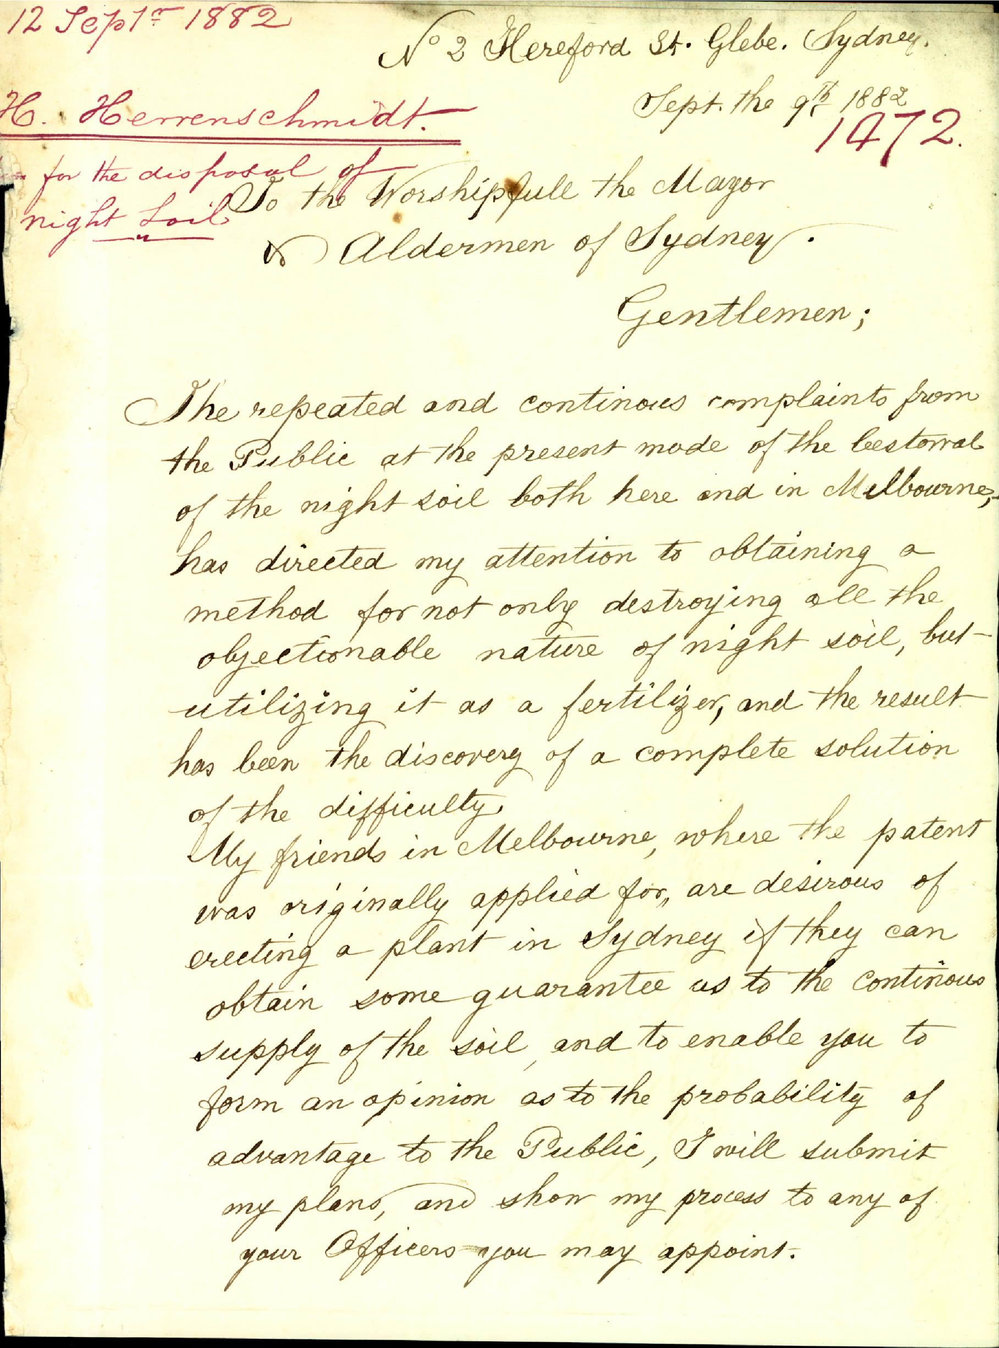 12 Sept 1882
No 2 Hereford St. Glebe. Sydney.
Sept. the 9th 1882
1472.
H. Herrenschmidt.
for the disposal of
night Soil
To the Worshipfull the Mayor
& Aldermen of Sydney.
Gentlemen;
The repeated and continous complaints from
the Public at the present mode of the bestowal
of the night soil both here and in Melbourne,
has directed my attention to obtaining a
method for not only destroying all the
objectionable nature of night soil, but
utilizing it as a fertilizer, and the result
has been the discovery of a complete solution
of the difficulty.
My friends in Melbourne, where the patent
was originally applied for, are desirous of
erecting a plant in Sydney if they can
obtain some guarantee as to the continous
supply of the soil, and to enable you to
form an opinion as to the probability of
advantage to the Public, I will submit
my plans, and show my process to any of
your Officers you may appoint.